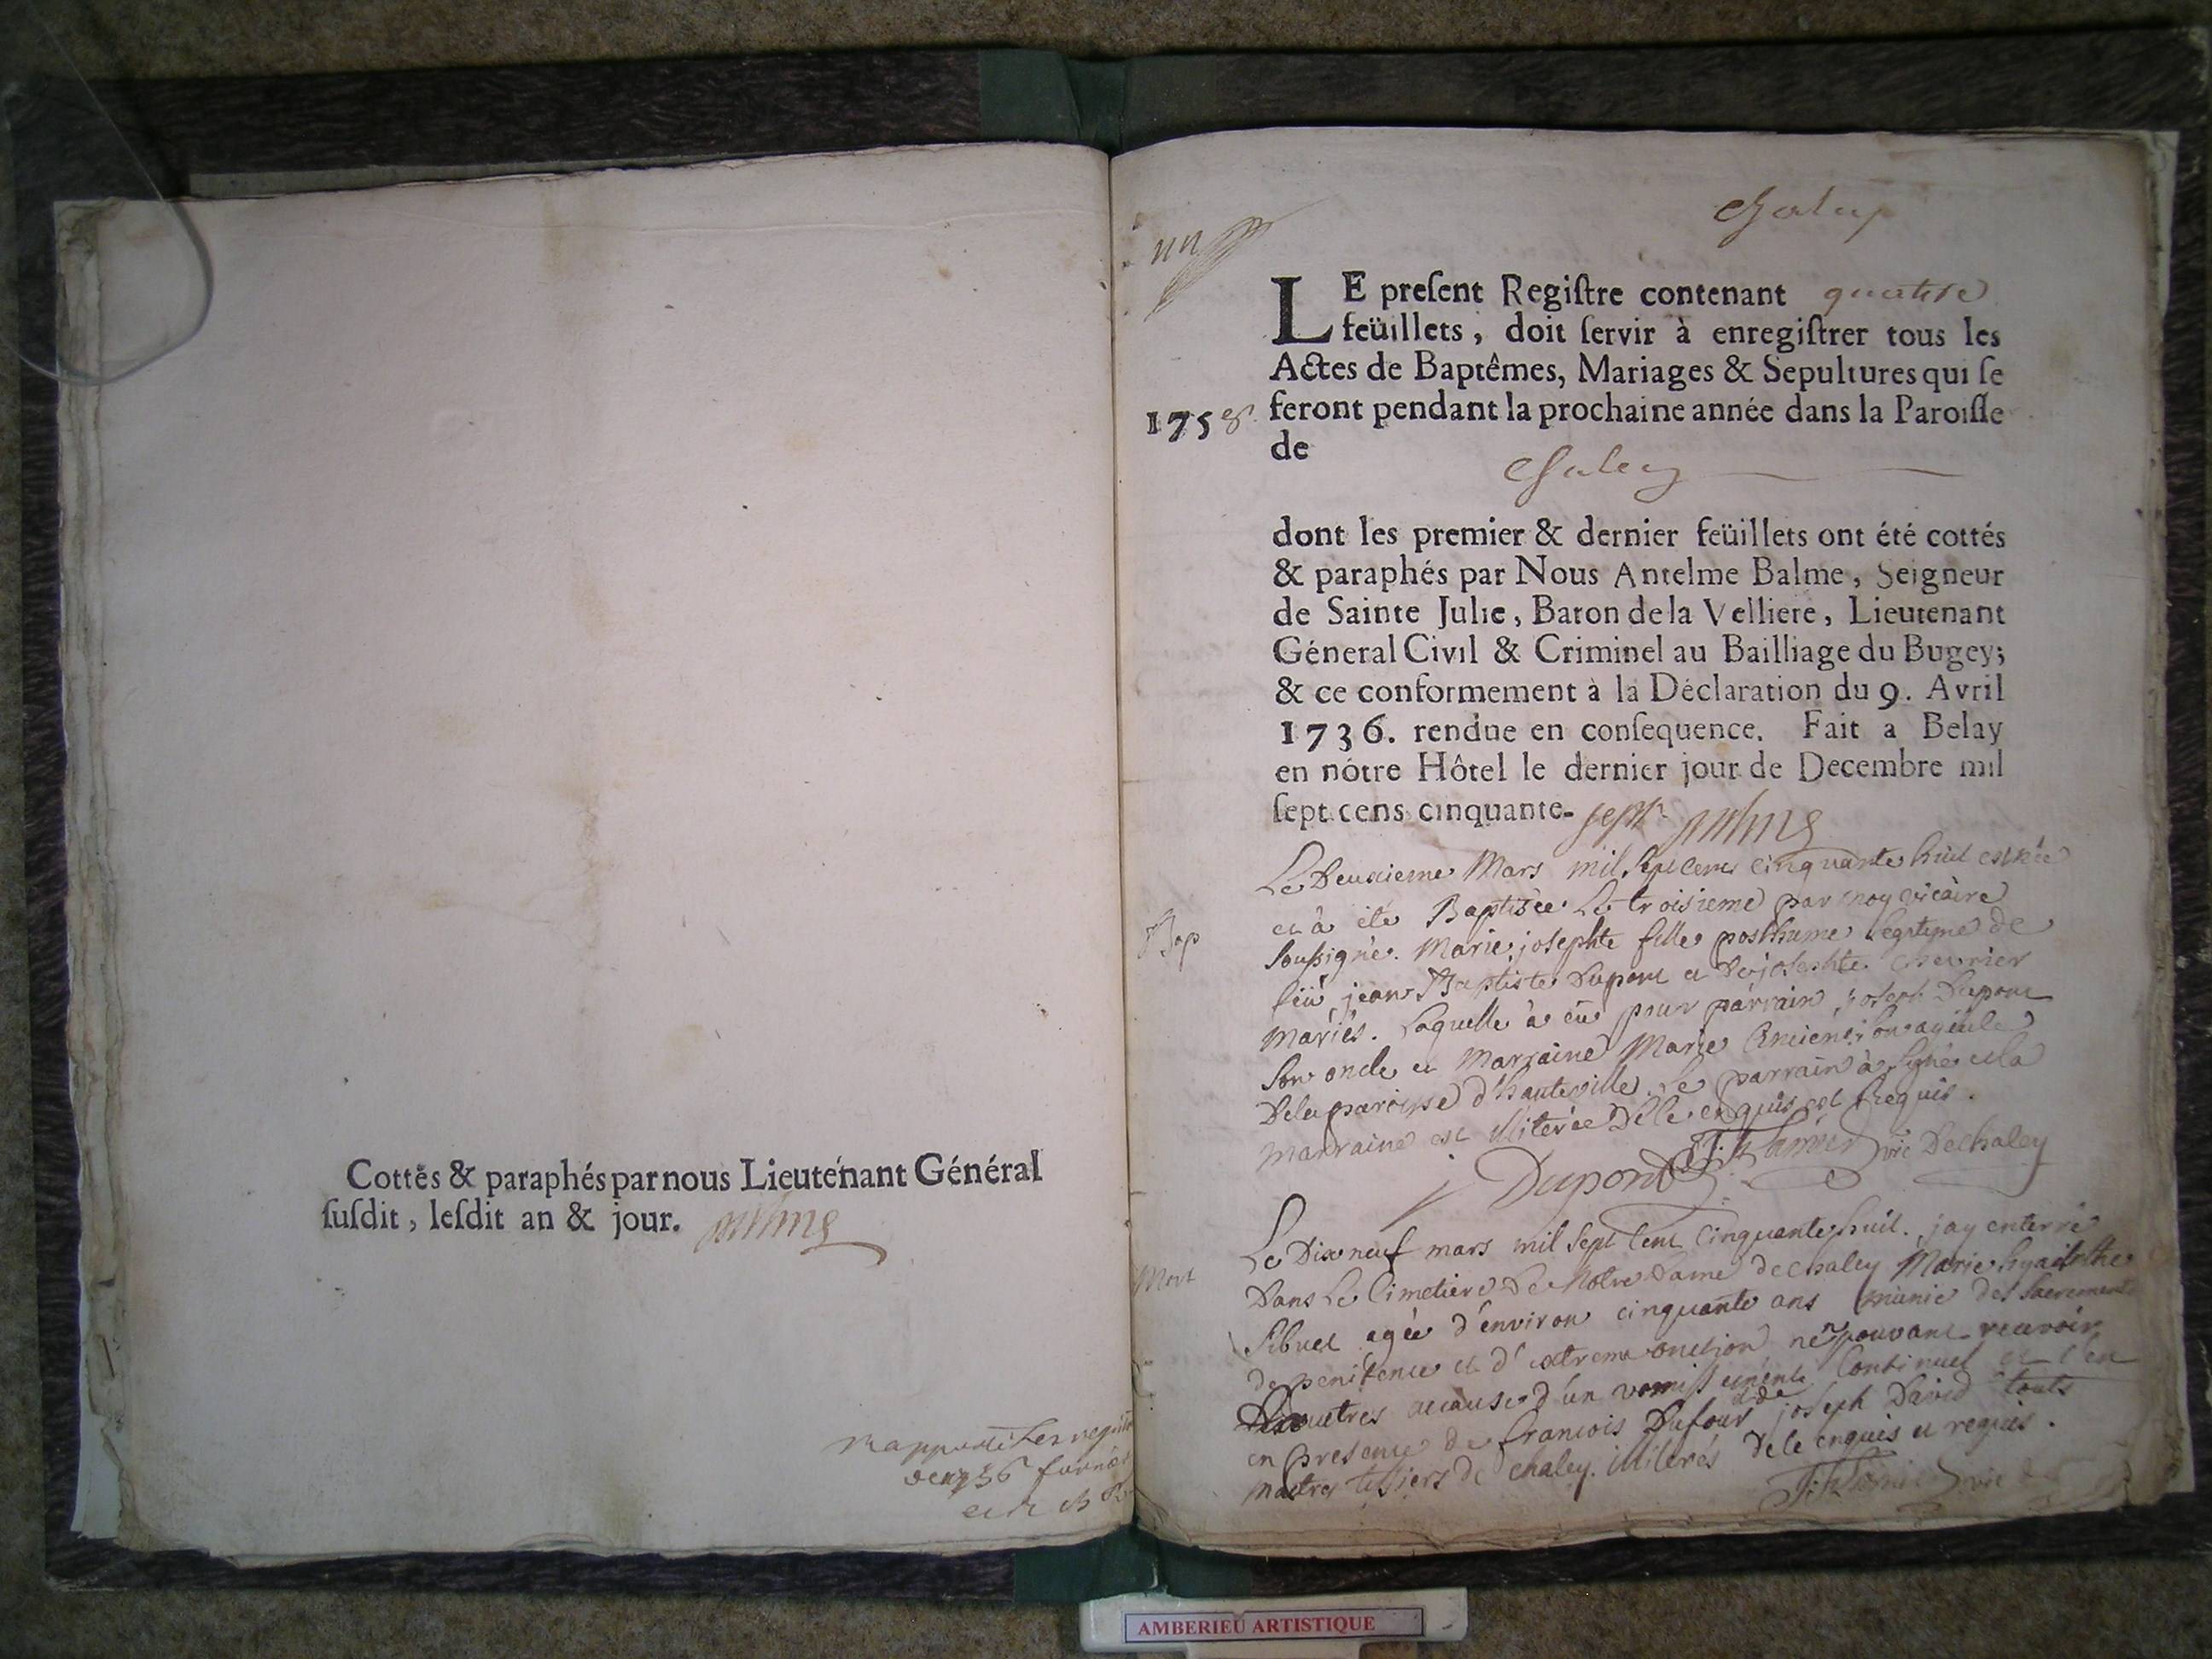 Cottés & paraphés par nous Lieutenant Général
susdit, lesdit an & jour. Balme
Chaley
un
LE present Registre contenant quatre
feüillets, doit servir à enregistrer tous les
Actes de Baptêmes, Mariages & Sepultures qui se
1758 feront pendant la prochaine année dans la Paroisse
de
Chaley
dont les premier & dernier feüillets ont été cottés
& paraphés par Nous Antelme Balme, Seigneur
de Sainte Julie, Baron de la Velliere, Lieutenant
Géneral Civil & Criminel au Bailliage du Bugey;
& ce conformement à la Déclaration du 9. Avril
1736. rendue en consequence. Fait a Belay
en nôtre Hôtel le dernier jour de Decembre mil
sept cens cinquante- sept Balme
Le Deuxieme Mars mil Sept cens cinquante huit est née
et à été Baptisée Le troisieme par moy vicaire
Bap
Soussigné. Marie josephte fille posthume legitime de
feü jean Baptiste Dupont et De josephte Chevrier
mariés. Laquelle à eü pour parrain joseph Dupont
Son oncle et Marraine Marie son ayeule
De la paroisse d'hauteville. Le parrain à Signé et la
marraine est illiterée De le enquis et Requis.
Dupont vic De chaley
Le Dix neuf mars mil Sept Cent Cinquante huit. jay enterré
Mort
Dans Le Cimetiere De Nôtre Dame de chaley Marie hyacinthe
Sibuet agée d'environ cinquante ans munie des Sacrements
de penitence et d'extreme onction ne pouvant recevoir
autres acause d'un vomissement Continuel et l'en
en presence de francois Dufour & de joseph David touts
maitres tissiers de chaley. illiterés De le enquis et requis.
vic
AMBERIEU ARTISTIQUE